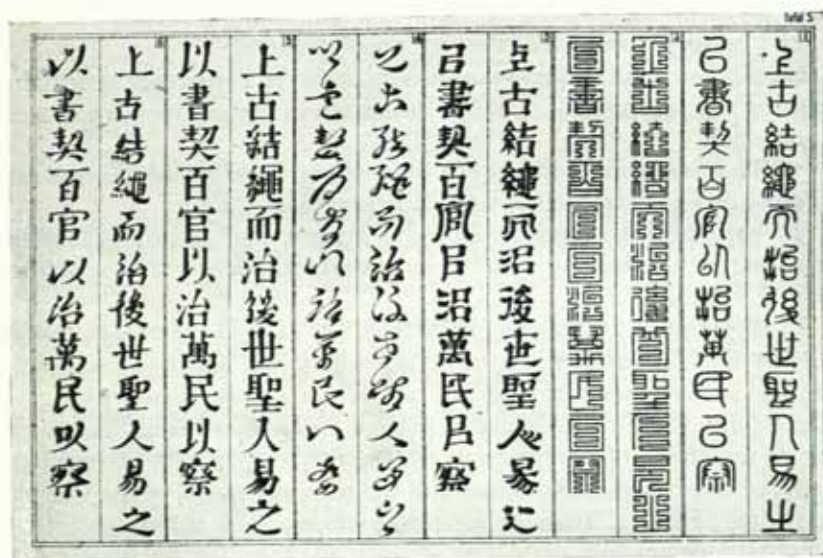 Tafel 5.
上古結繩而治後世聖人易之
以書契百官以治萬民以察
上古結繩而治後世聖人易之
以書契百官以治萬民以察
上古結繩而治後世聖人易之
以書契百官以治萬民以察
上古結繩而治後世聖人易之
以書契百官以治萬民以察
上古結繩而治後世聖人易之
以書契百官以治萬民以察
上古結繩而治後世聖人易之
以書契百官以治萬民以察